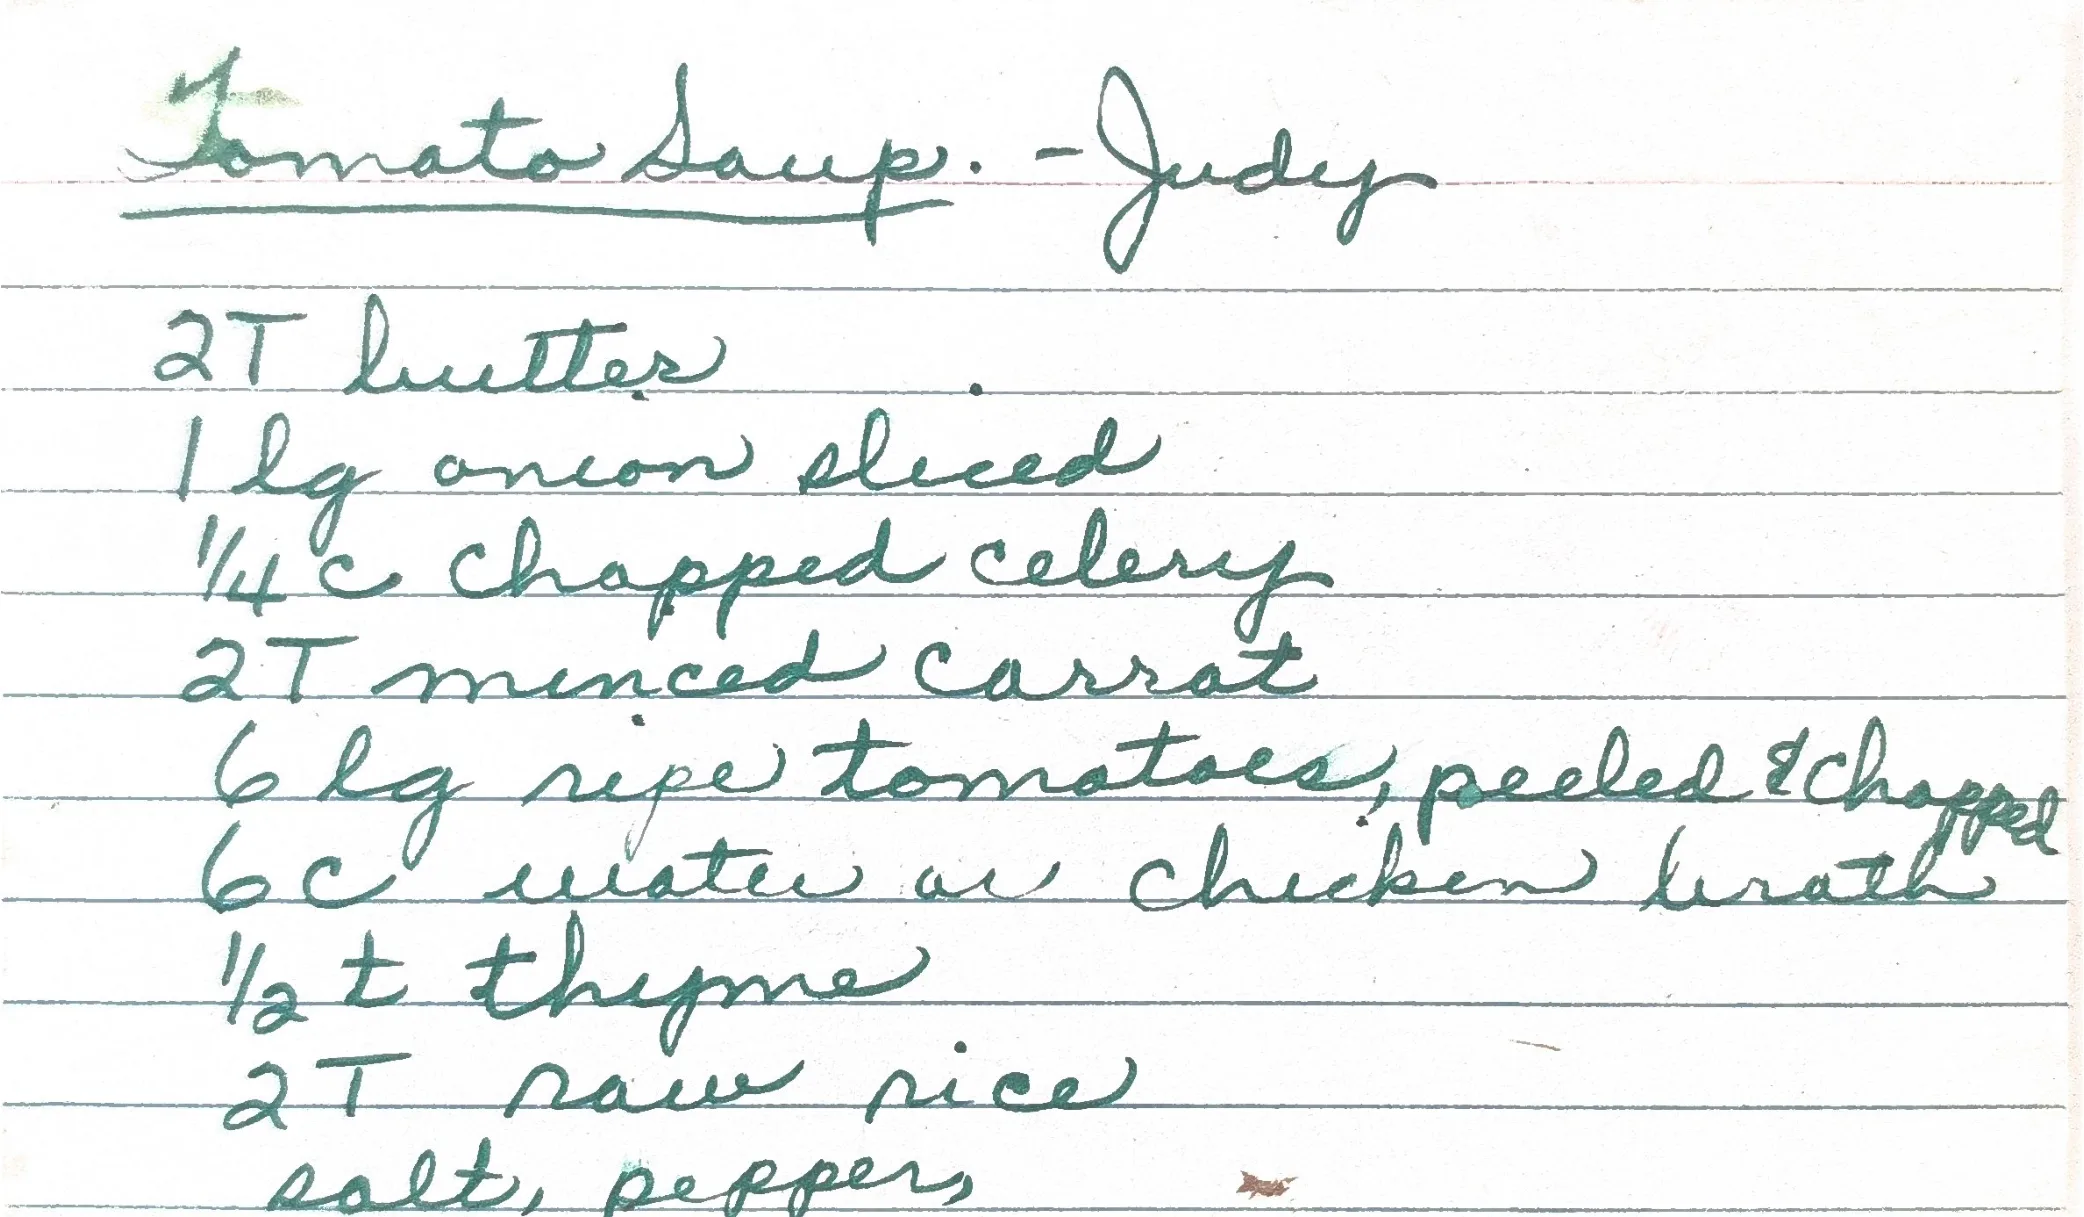 Tomato Soup. - Judy
2T butter
1 lg onion sliced
1/4 c chopped celery
2T minced carrot
6 lg ripe tomatoes, peeled & chopped
6 c water or chicken broth
1/2 t thyme
2T raw rice
salt, pepper,